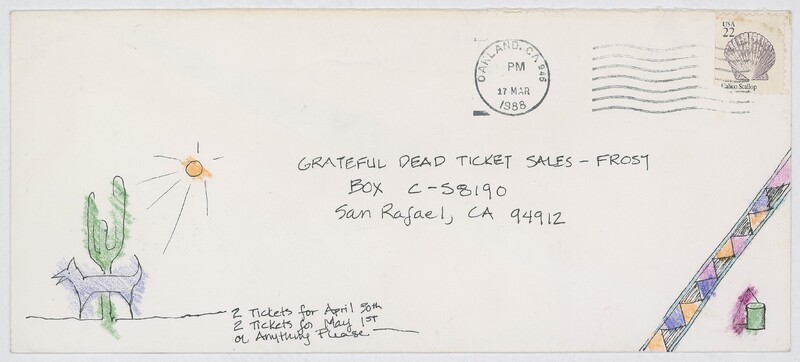 OAKLAND, CA 946
PM
17 MAR
1988
USA
22
Calico Scallop
GRATEFUL DEAD TICKET SALES - FROST
BOX C-S8190
San Rafael, CA 94912
2 Tickets for April 30th
2 Tickets for May 1ST
or Anything Please